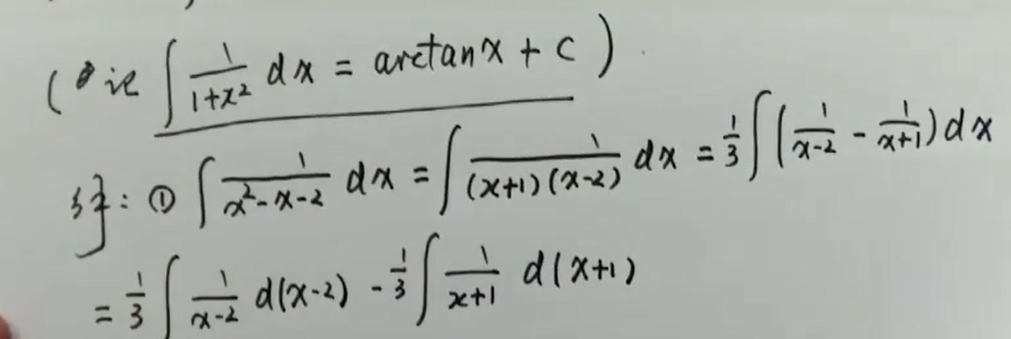 (记 ∫ 1/(1+x²) dx = arctanx + C)
例: ① ∫ 1/(x²-x-2) dx = ∫ 1/((x+1)(x-2)) dx = 1/3 ∫ (1/(x-2) - 1/(x+1)) dx
= 1/3 ∫ 1/(x-2) d(x-2) - 1/3 ∫ 1/(x+1) d(x+1)